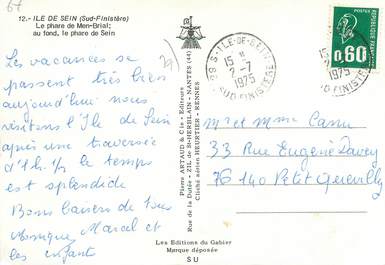 67
12.- ILE DE SEIN (Sud-Finistère)
Le phare de Men-Brial;
au fond, le phare de Sein
Les vacances se
passent très bien
aujourd'hui nous
visitons l'Ile de Sein
après une traversée
d'1h. le temps
est splendide
Bons baisers de tous
Monique Marcel et
les enfants
Pierre ARTAUD & Cie - Editeurs
Rue de la Dutée - ZIL de St-HERBLAIN - NANTES (44)
Cliché aérien HEURTIER - RENNES
29 S-ILE-DE-SEIN
15 H
2-7
1975
SUD FINISTERE
POSTES
0,60
15
2-7
1975
SUD FINISTERE
Mr et Mme Canu
33 Rue Eugène Davey
76 140 Petit Quevilly
Les Editions du Gabier
Marque déposée
SU